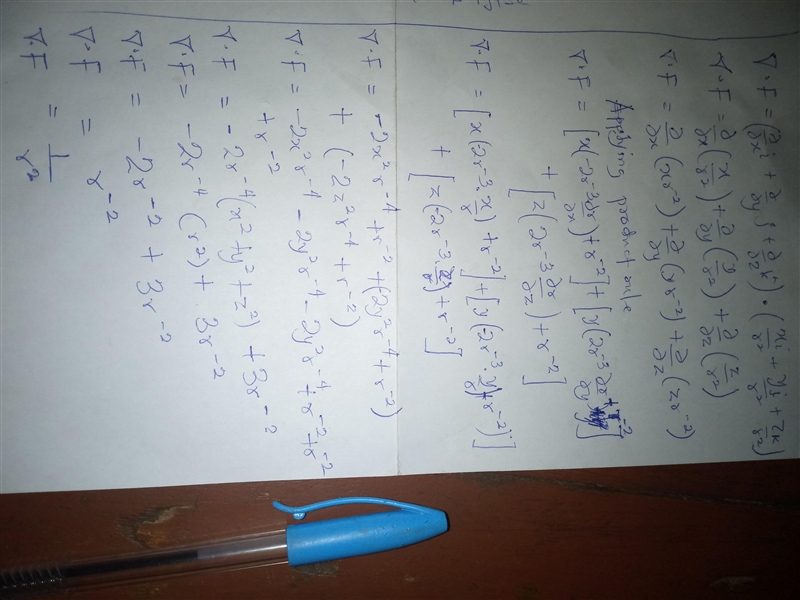 ∇·F = (∂/∂x i + ∂/∂y j + ∂/∂z k) • (xi/r² + yj/r² + zk/r²)
∇·F = ∂/∂x (x/r²) + ∂/∂y (y/r²) + ∂/∂z (z/r²)
∇·F = ∂/∂x (xr⁻²) + ∂/∂y (yr⁻²) + ∂/∂z (zr⁻²)
Applying product rule
∇·F = [x(-2r⁻³ ∂r/∂x) + r⁻²] + [y(-2r⁻³ ∂r/∂y + r⁻²]
+ [z(2r⁻³ ∂r/∂z) + r⁻²]
∇·F = [x(-2r⁻³·x/r) + r⁻²] + [y(-2r⁻³·y/r) + r⁻²)]
+ [z(-2r⁻³·z/r) + r⁻²]
∇·F = -2x²r⁻⁴ + r⁻² + (2y²r⁻⁴ + r⁻²)
+ (-2z²r⁻⁴ + r⁻²)
∇·F = -2x²r⁻⁴ - 2y²r⁻⁴ - 2y²r⁻⁴ + r⁻² + r⁻²
+ r⁻²
∇·F = -2r⁻⁴(x² + y² + z²) + 3r⁻²
∇·F = -2r⁻⁴ (r²) + 3r⁻²
∇·F = -2r⁻² + 3r⁻²
∇·F = r⁻²
∇·F = 1/r²